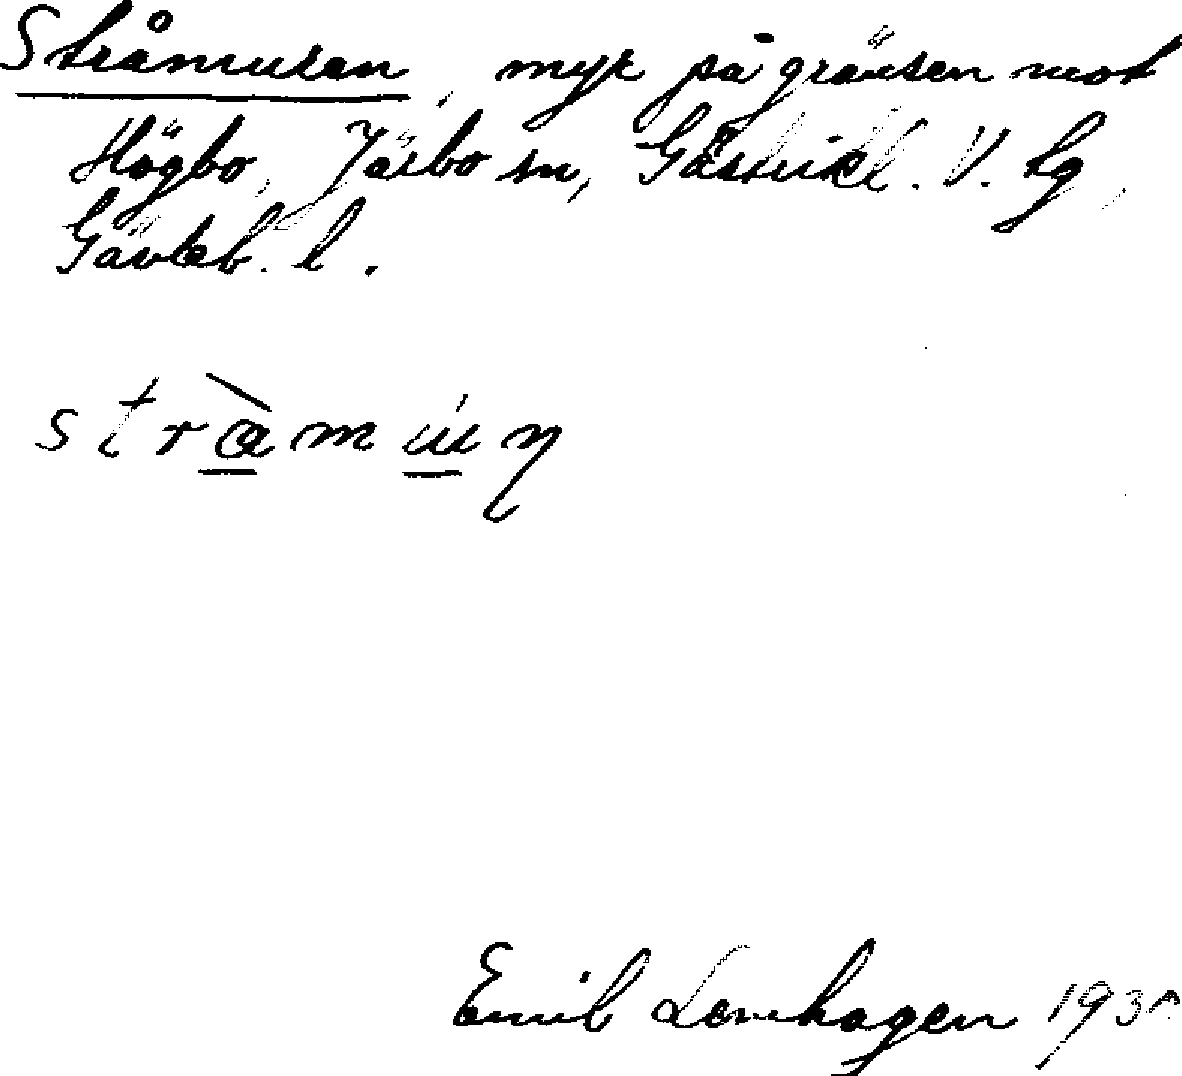 Stråmuren, myr på gränsen mot
Högbo, Järbo sn, Gästrikl. V. tg,
Gävleb. l.
Emil Lenhagen